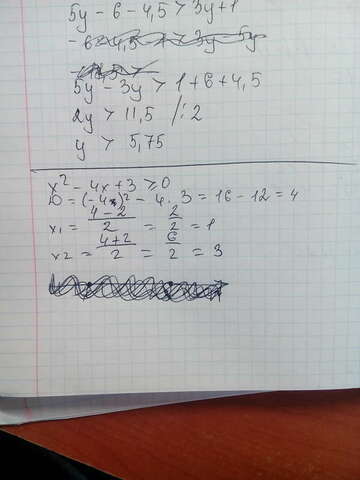 5y - 6 - 4,5 > 3y + 1
5y - 3y > 1 + 6 + 4,5
2y > 11,5 /:2
y > 5,75
x² - 4x + 3 ≥ 0
D = (-4)² - 4 . 3 = 16 - 12 = 4
x1 = (4-2)/2 = 2/2 = 1
x2 = (4+2)/2 = 6/2 = 3